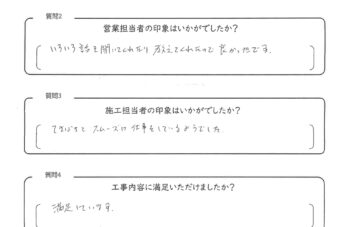 質問2
営業担当者の印象はいかがでしたか?
いろいろ話を聞いてくれたり 教えてくれたので 良かったです。
質問3
施工担当者の印象はいかがでしたか?
てきぱきと スムーズに 仕事をしているようでした
質問4
工事内容に満足いただけましたか?
満足しています。